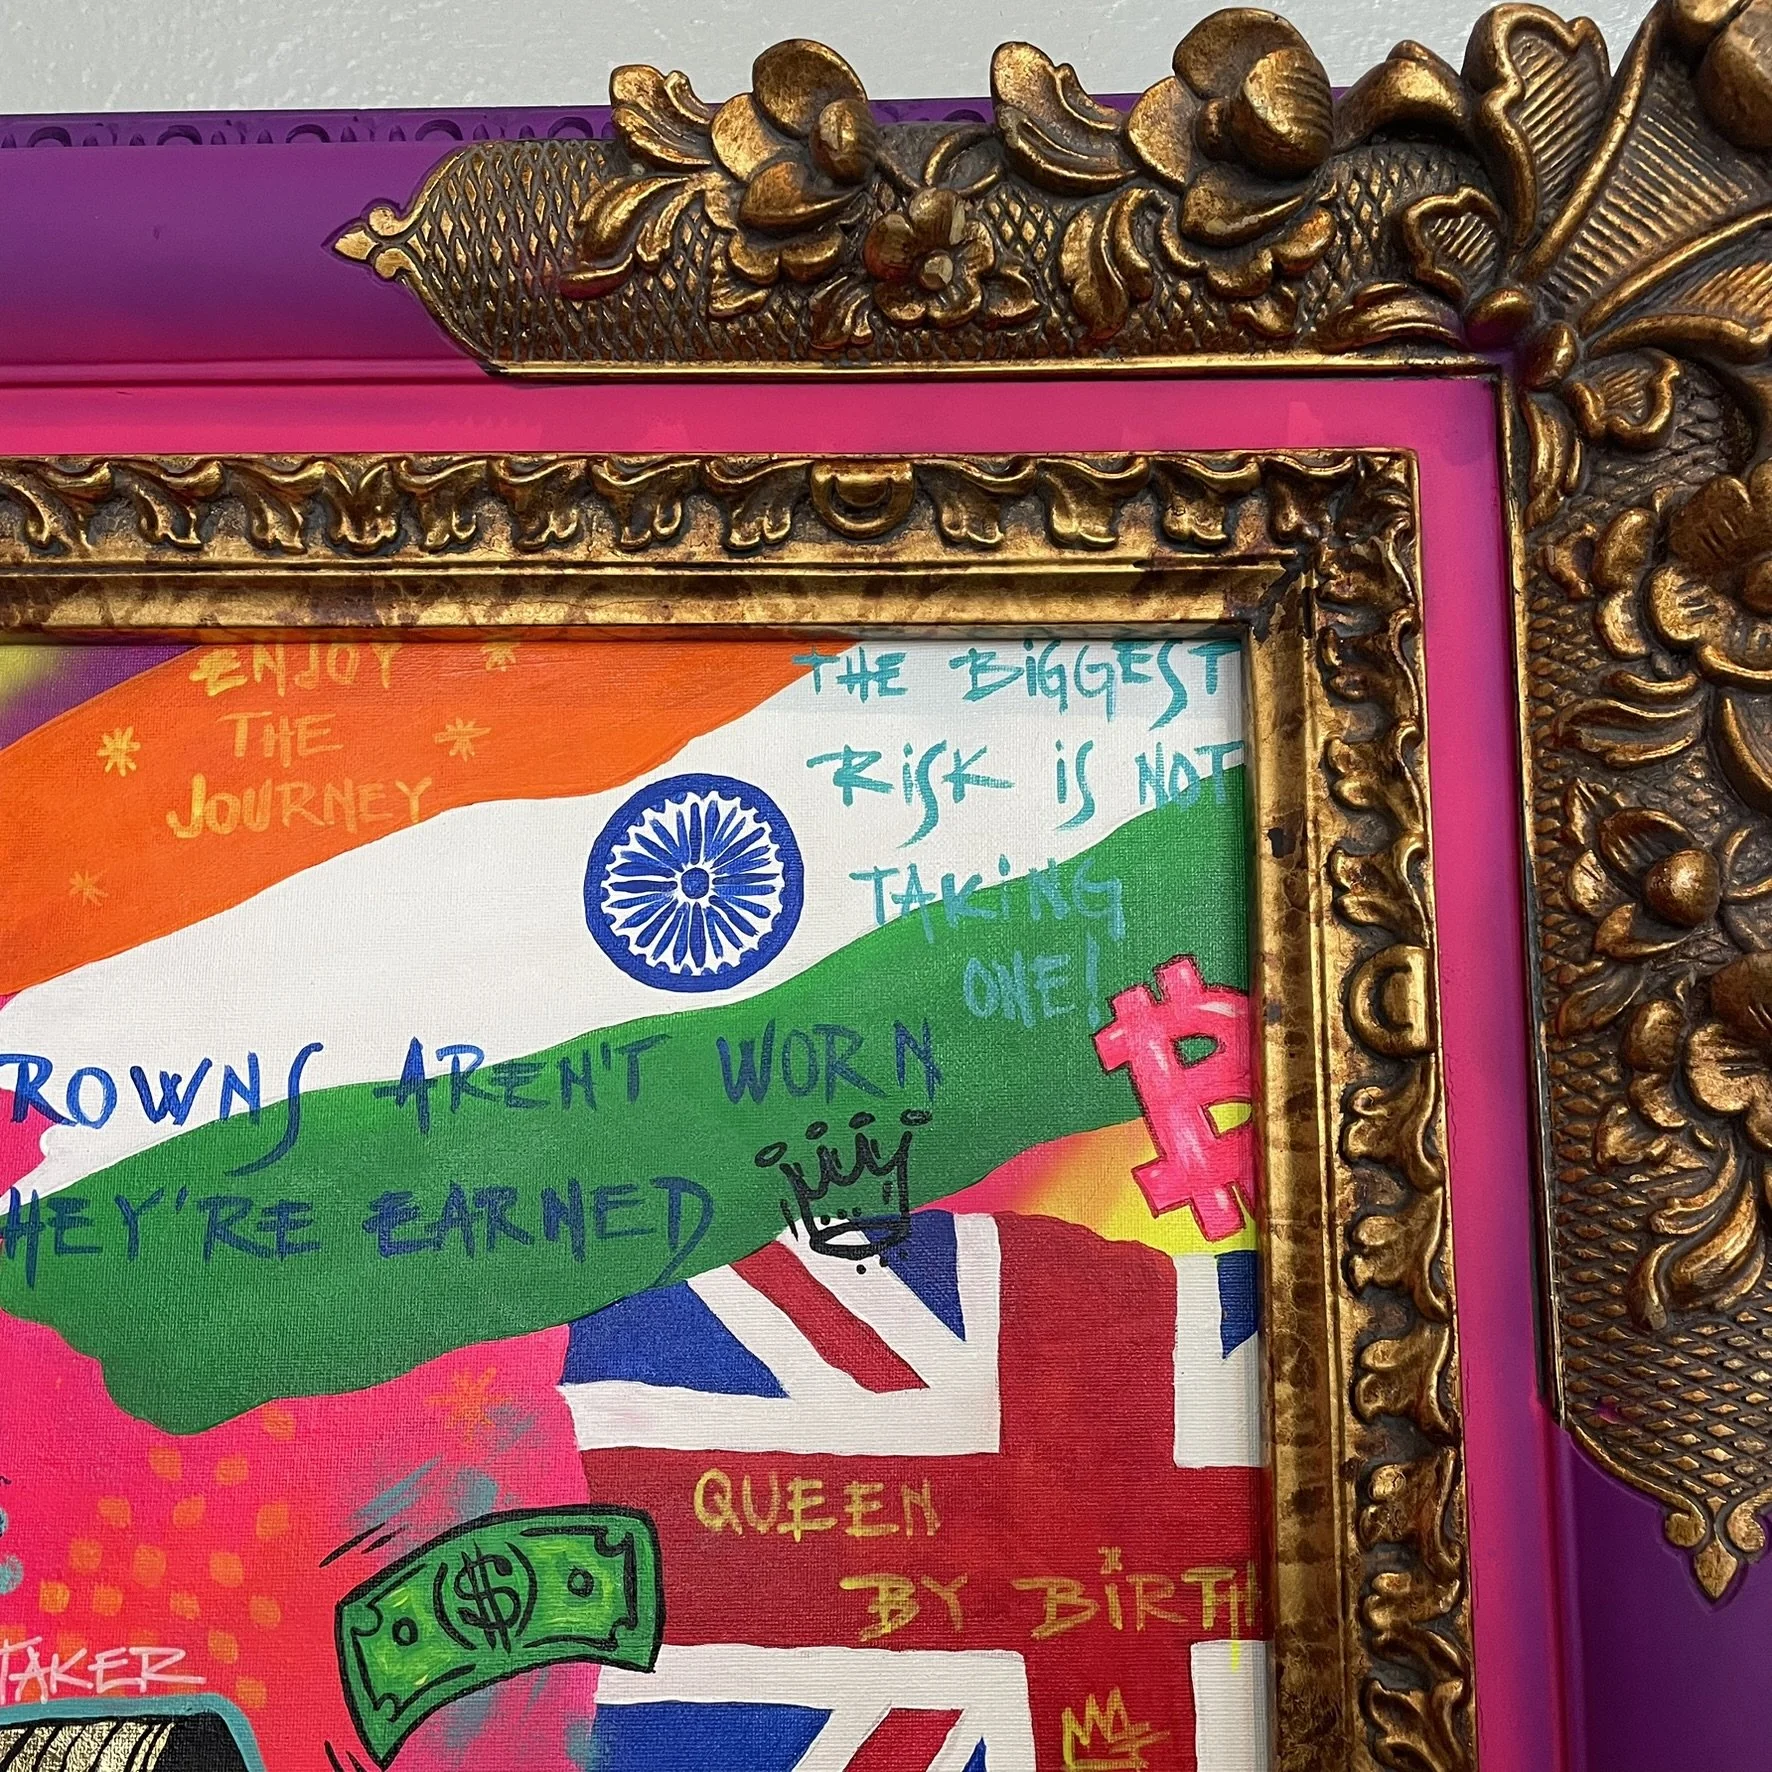 ENJOY
THE
JOURNEY
THE BIGGEST
RISK IS NOT
TAKING
ONE!
ROWNS AREN'T WORN
HEY'RE EARNED
QUEEN
BY BIRTH
TAKER
$